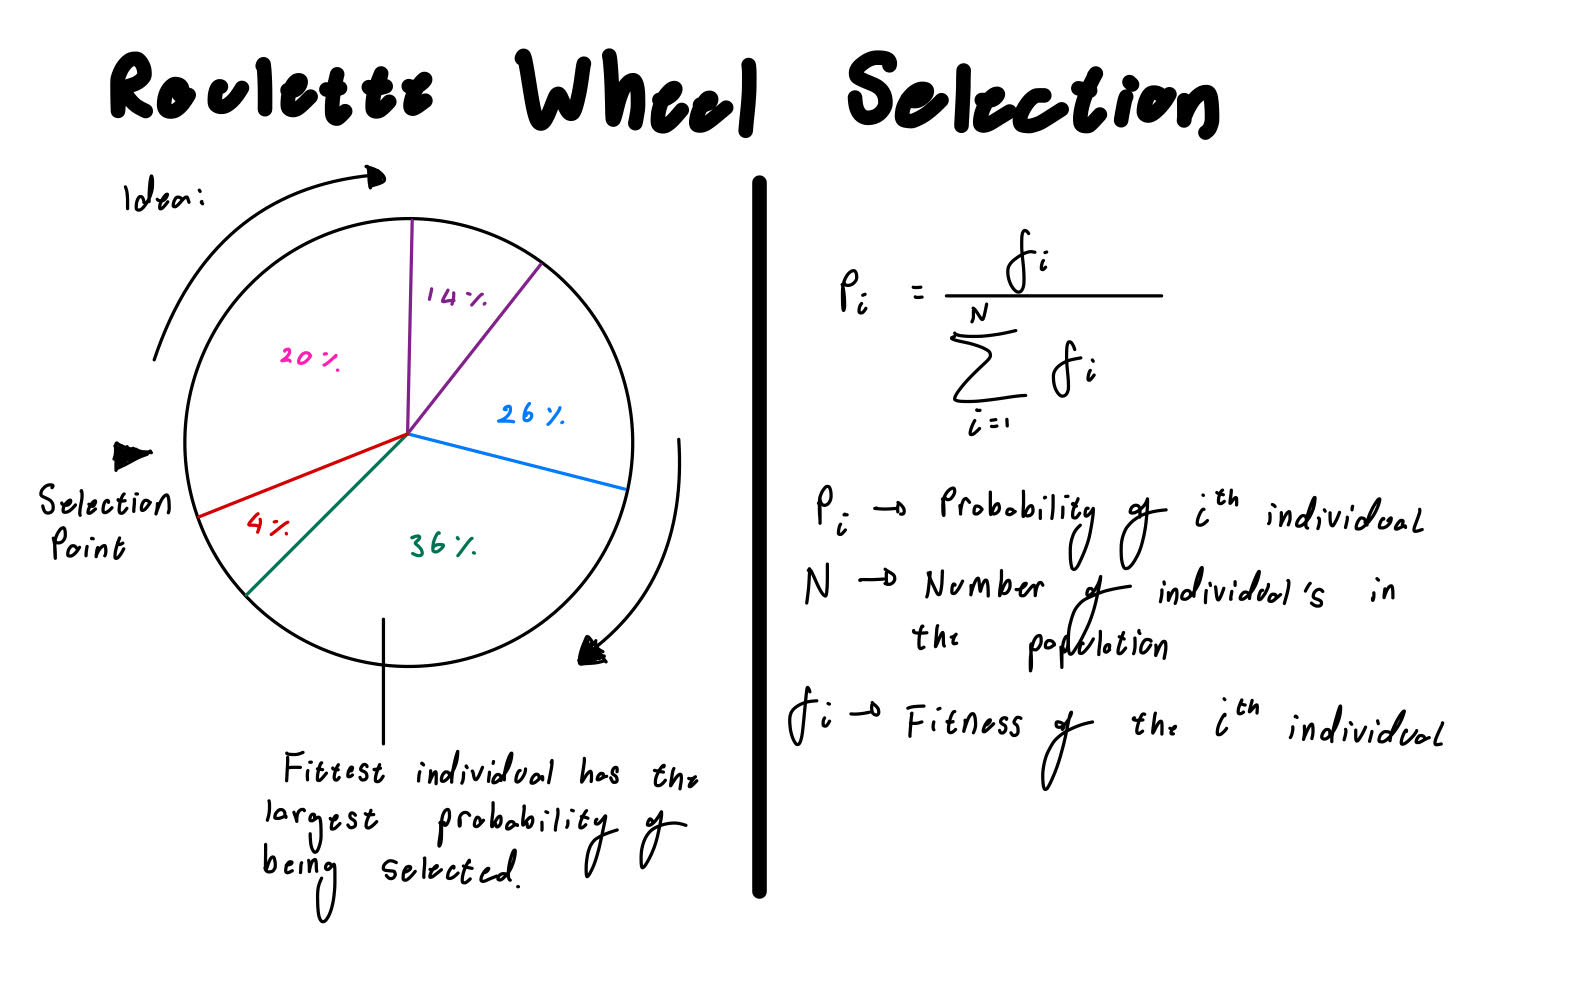 Roulette Wheel Selection
Idea:
14%
20%
26%
4%
36%
Selection
Point
Fittest individual has the
largest probability of
being selected.
Pi = fi
N
∑ fi
i=1
Pi → Probability of iᵗʰ individual
N → Number of individual's in
the population
fi → Fitness of the iᵗʰ individual